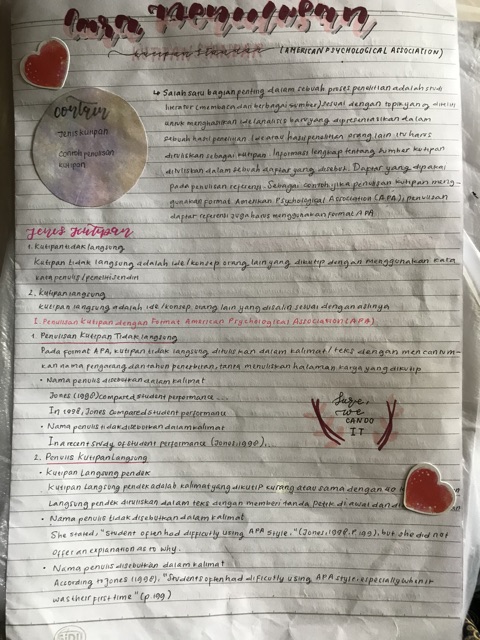 Cara Penulisan
(AMERICAN PSYCHOLOGICAL ASSOCIATION)
contain
Jenis kutipan
contoh penulisan
kutipan
↳ Salah satu bagian penting dalam sebuah proses penelitian adalah studi
literatur (membaca dari berbagai sumber) sesuai dengan topik yang diteliti
untuk menghasilkan ide/analisis baru yang dipresentasikan dalam
sebuah hasil penelitian. Ide atau hasil penelitian orang lain itu harus
dituliskan sebagai kutipan. Informasi lengkap tentang sumber kutipan
dituliskan dalam sebuah daftar yang disebut. Daftar yang dipakai
pada penulisan referensi. Sebagai contoh jika penulisan kutipan meng-
gunakan format American Psychological Association (APA), penulisan
daftar referensi juga harus menggunakan format APA
Jenis kutipan
1. Kutipan tidak langsung
Kutipan tidak langsung adalah ide/konsep orang lain yang dikutip dengan menggunakan kata
kata penulis/peneliti sendiri
2. Kutipan langsung
kutipan langsung adalah ide/konsep orang lain yang disalin sesuai dengan aslinya
I. Penulisan kutipan dengan Format American Psychological Association (APA)
1. Penulisan Kutipan Tidak langsung
Pada format APA, kutipan tidak langsung dituliskan dalam kalimat/teks dengan mencantum-
kan nama pengarang dan tahun penerbitan, tanpa menuliskan halaman karya yang dikutip
• Nama penulis disebutkan dalam kalimat
Jones (1998) compared student performance ...
In 1998, Jones compared student performance
• Nama penulis tidak disebutkan dalam kalimat
In a recent study of student performance (Jones, 1998), ..
Sure,
we
CAN DO
IT
2. Penulis Kutipan Langsung
• Kutipan Langsung pendek
Kutipan Langsung pendek adalah kalimat yang dikutip kurang atau sama dengan 40
Langsung pendek dituliskan dalam teks dengan memberi tanda petik di awal dan
• Nama penulis tidak disebutkan dalam kalimat
She stated, "Student often had difficulty using APA Style," (Jones, 1998. P. 199), but she did not
offer an explanation as to why.
• Nama penulis disebutkan dalam kalimat
According to Jones (1998), "Students often had dificutly using APA style, especially when it
was their first time" (p. 199)
SIDU